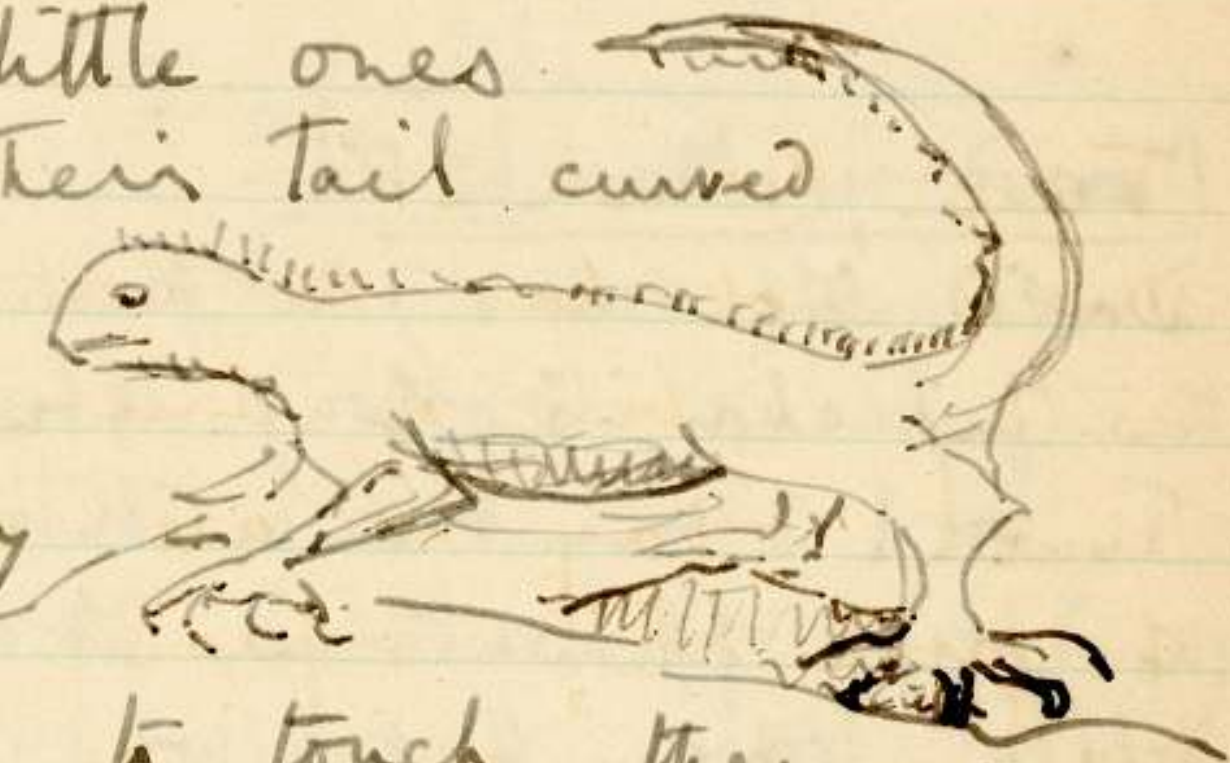 little ones
their tail curved
to touch the